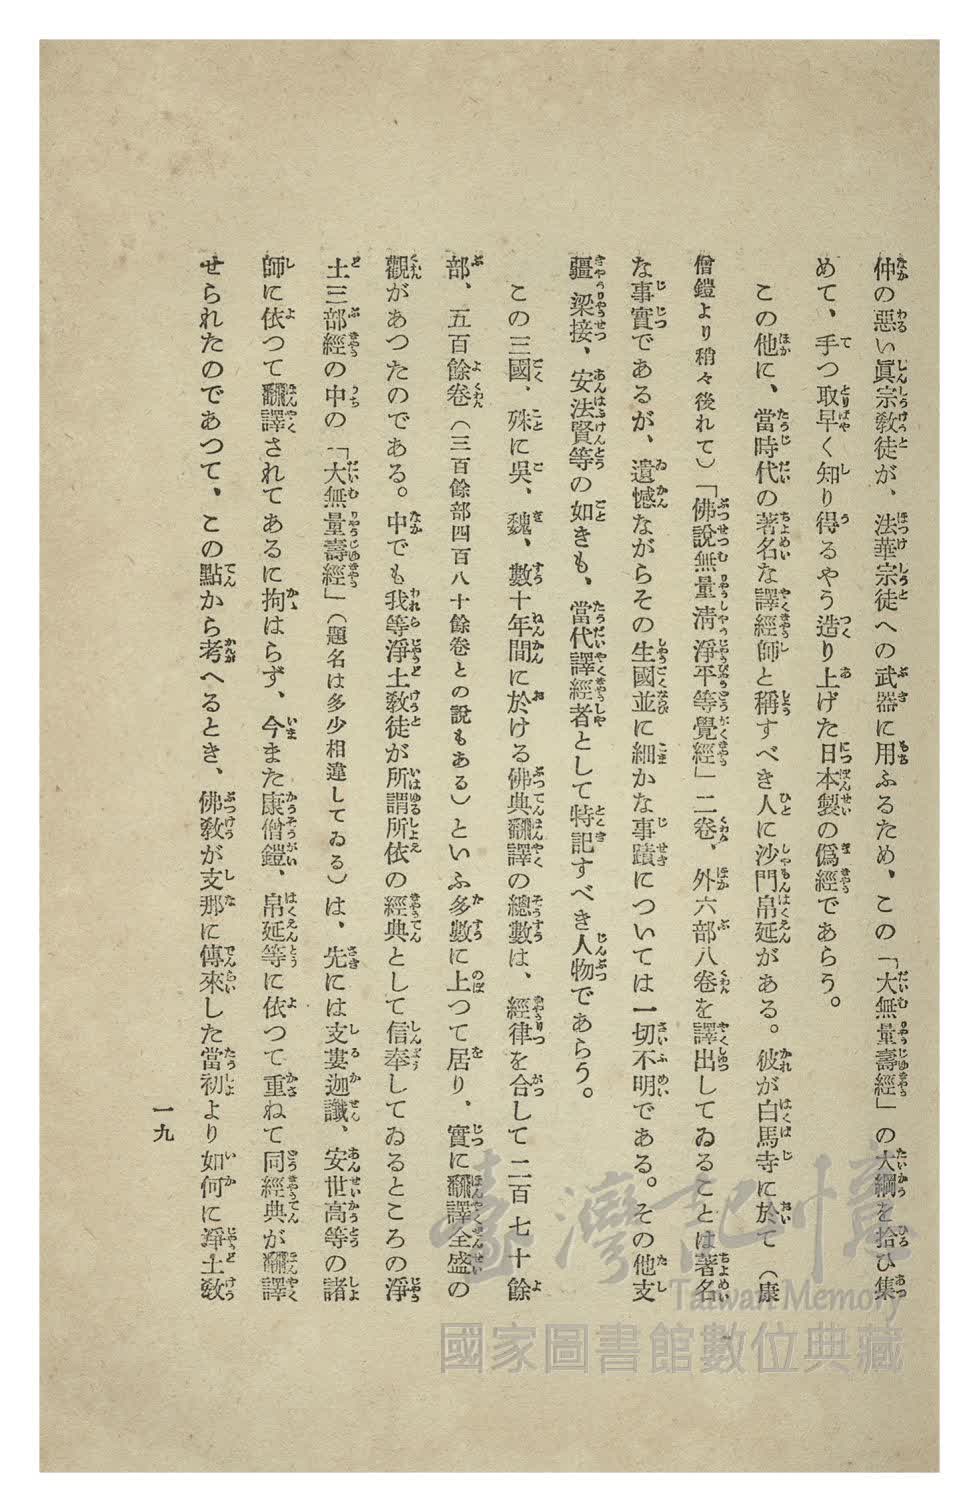 仲の惡い眞宗教徒が、法華宗徒への武器に用ふるため、この「大無量壽經」の大綱を拾ひ集
めて、手つ取早く知り得るやう造り上げた日本製の僞經であらう。
この他に、當時代の著名な譯經師と稱すべき人に沙門帛延がある。彼が白馬寺に於て（康
僧鎧より稍々後れて）「佛說無量淸淨平等覺經」二卷、外六部八卷を譯出してゐることは著名
な事實であるが、遺憾ながらその生國並に細かな事蹟については一切不明である。その他支
疆梁接、安法賢等の如きも、當代譯經者として特記すべき人物であらう。
この三國、殊に吳、魏、數十年間に於ける佛典飜譯の總數は、經律を合して二百七十餘
部、五百餘卷（三百餘部四百八十餘卷との說もある）といふ多數に上つて居り、實に飜譯全盛の
觀があつたのである。中でも我等淨土敎徒が所謂所依の經典として信奉してゐるところの淨
土三部經の中の「大無量壽經」（題名は多少相違してゐる）は、先には支婁迦讖、安世高等の諸
師に依つて飜譯されてあるに拘はらず、今また康僧鎧、帛延等に依つて重ねて同經典が飜譯
せられたのであつて、この點から考へるとき、佛敎が支那に傳來した當初より如何に淨土敎
一九
臺灣記憶
Taiwan Memory
國家圖書館數位典藏